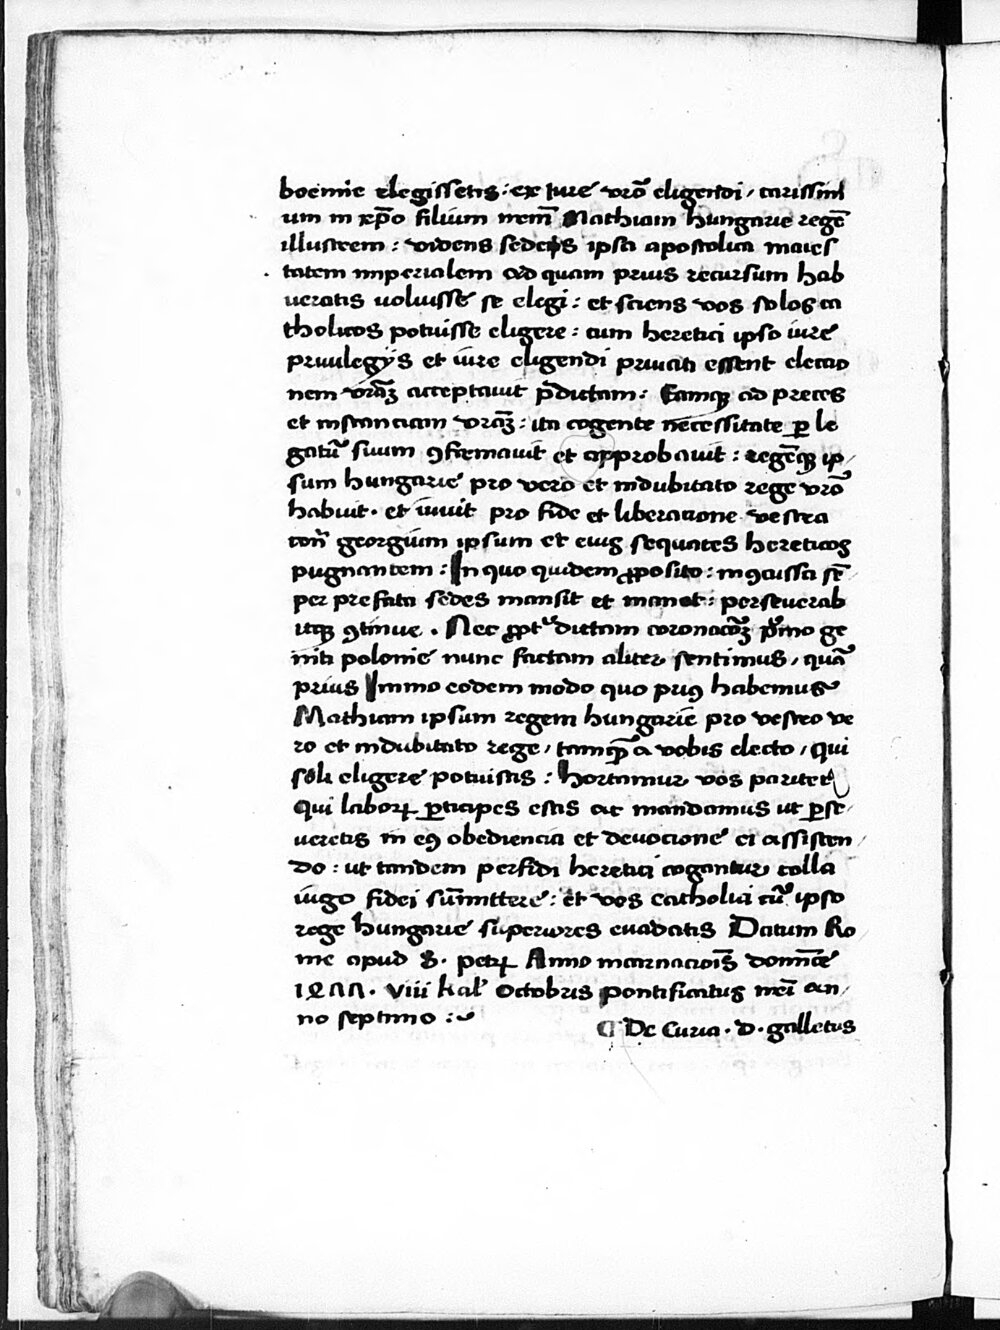 boemie elegissetis : ex Jure vr̄o eligendi / carissim
um in xp̄o filium nrm̄ Mathiam hungarie regē
illustrem : videns sedes ipsa apostolica maies
tatem imperialem ad quam prius recursum hab
ueratis voluisse se elegi : et sciens vos solos ca
tholicos potuisse eligere : cum heretici ipso iure
priuilegijs et iure eligendi priuati essent electio
nem vr̄aꝫ acceptauit p̄dictam : Eamqꝫ ad preces
et instanciam vr̄aꝫ : ita cogente necessitate ꝑ le
gatū suum ꝯfirmauit et approbauit : regēqꝫ ip/
sum hungarie pro vero et indubitato rege vr̄o
habuit · et iuuit pro fide et liberacione vestra
cont̄ georgium ipsum et eiuꝰ sequaces hereticos
pugnantem : In quo quidem ꝓposito : inꝯcussa sē
per prefata sedes mansit et manet : perseuerab
itqꝫ ꝯtinue . Nec ꝓpt dictam coronacōꝫ p̄mo ge
niti polonie nunc factam aliter sentimus / quā
prius Immo eodem modo quo priꝰ habemus
Mathiam ipsum regem hungarie pro vestro ve
ro et indubitato rege / tamq̄ a vobis electo / qui
soli eligere potuistis : hortamur vos pariter
Qui laboꝝ ꝑticipes estis ac mandamus ut ꝑse/
ueretis in eꝰ obediencia et deuocione ei assisten/
do : ut tandem perfidi heretici cogantur colla
iugo fidei sūmittere : et vos catholici cū ipso
rege hungarie superiores euadatis Datum Ro
me apud S. petꝝ Anno incarnaciōis domīce
1477 . viii kal Octobris pontificatus mei an/
no septimo :
¶ De Curia . d . galletus